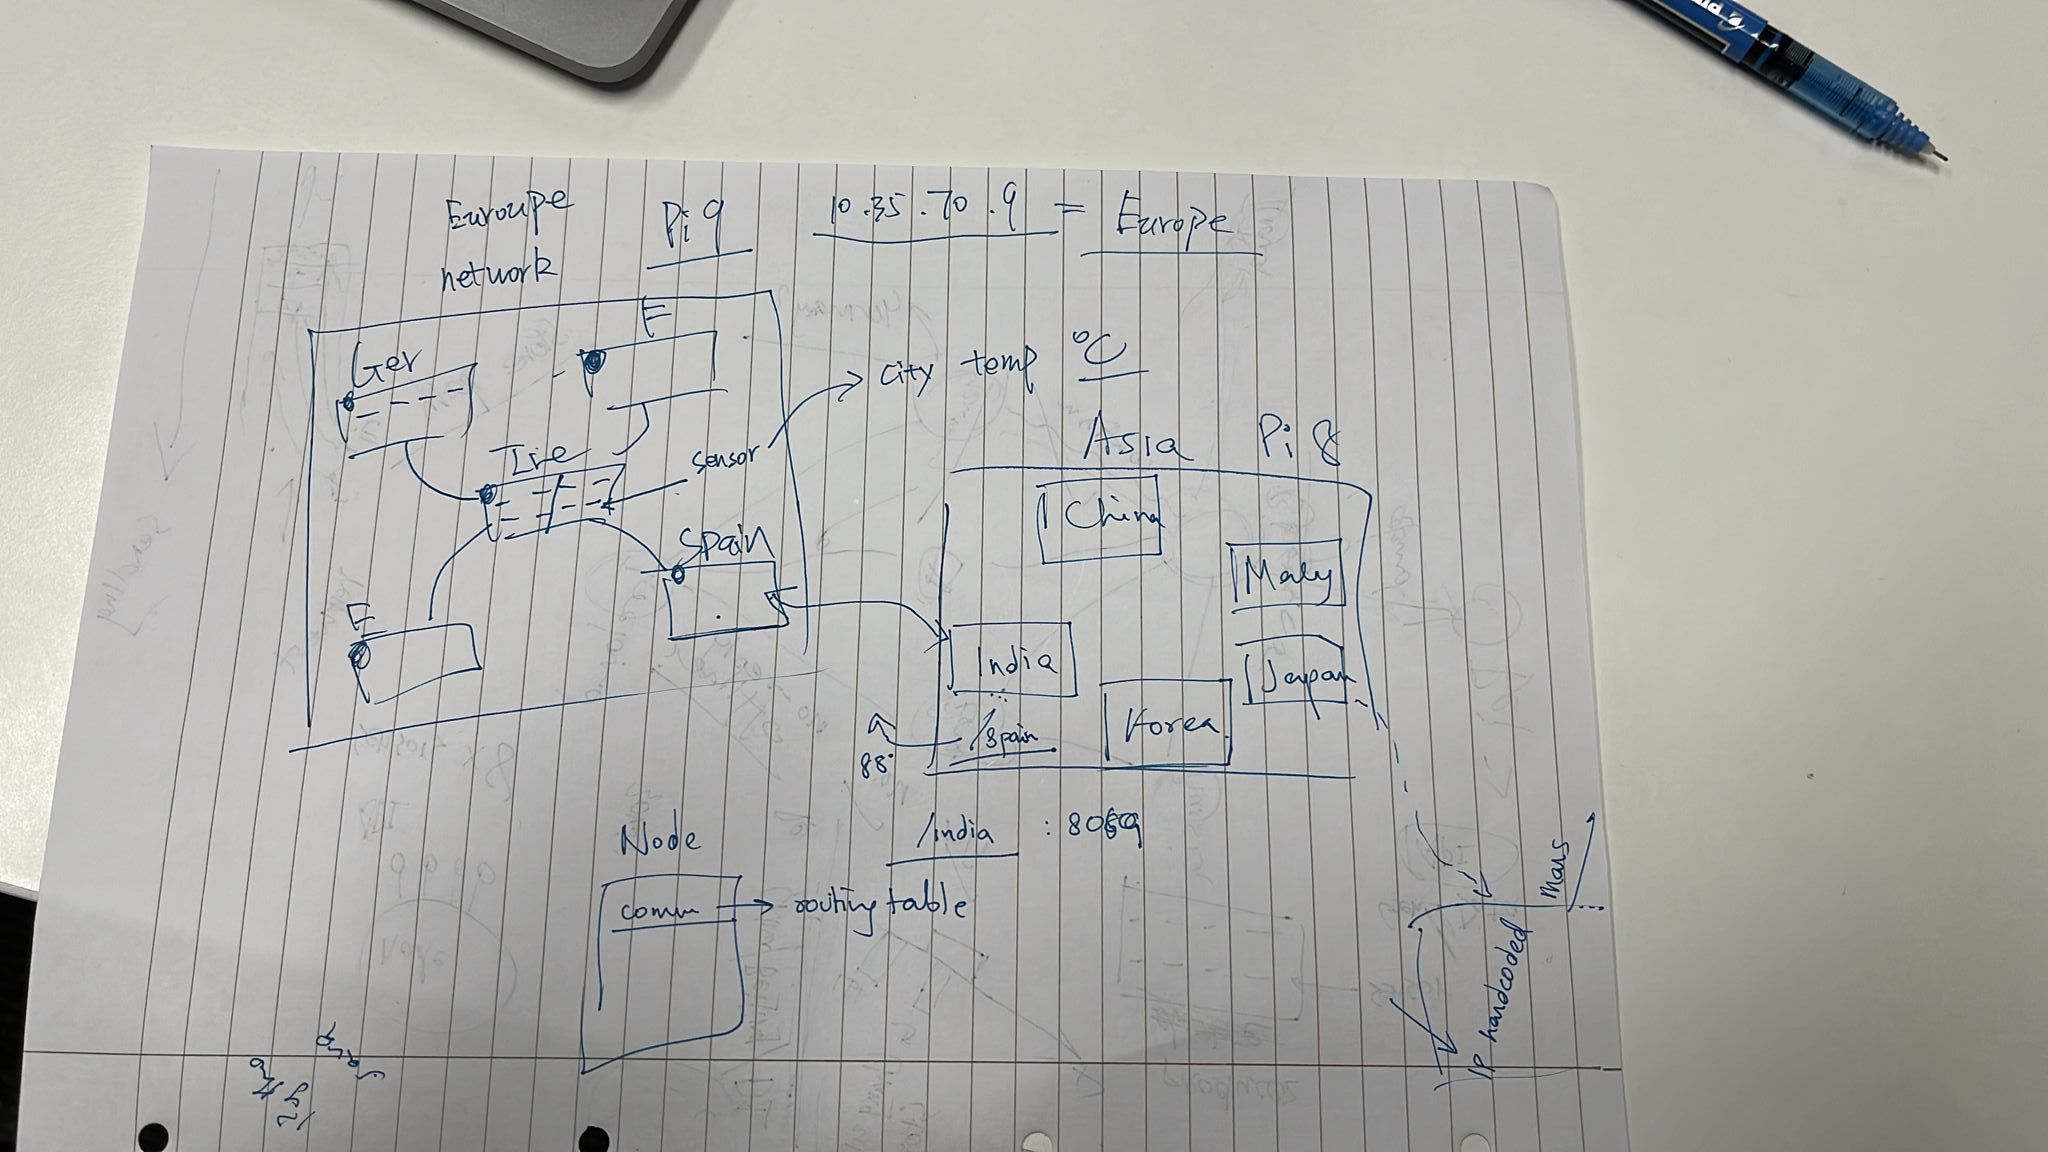 Euroupe
network
Pi 9
10.35.70.9 = Europe
E
Ger
Ire
sensor
city temp °C
Spain
E
Asia Pi 8
China
Maly
India
Japan
Korea
/Spain
88°
Node
/india
comm
routing table
Mars
IP handcoded